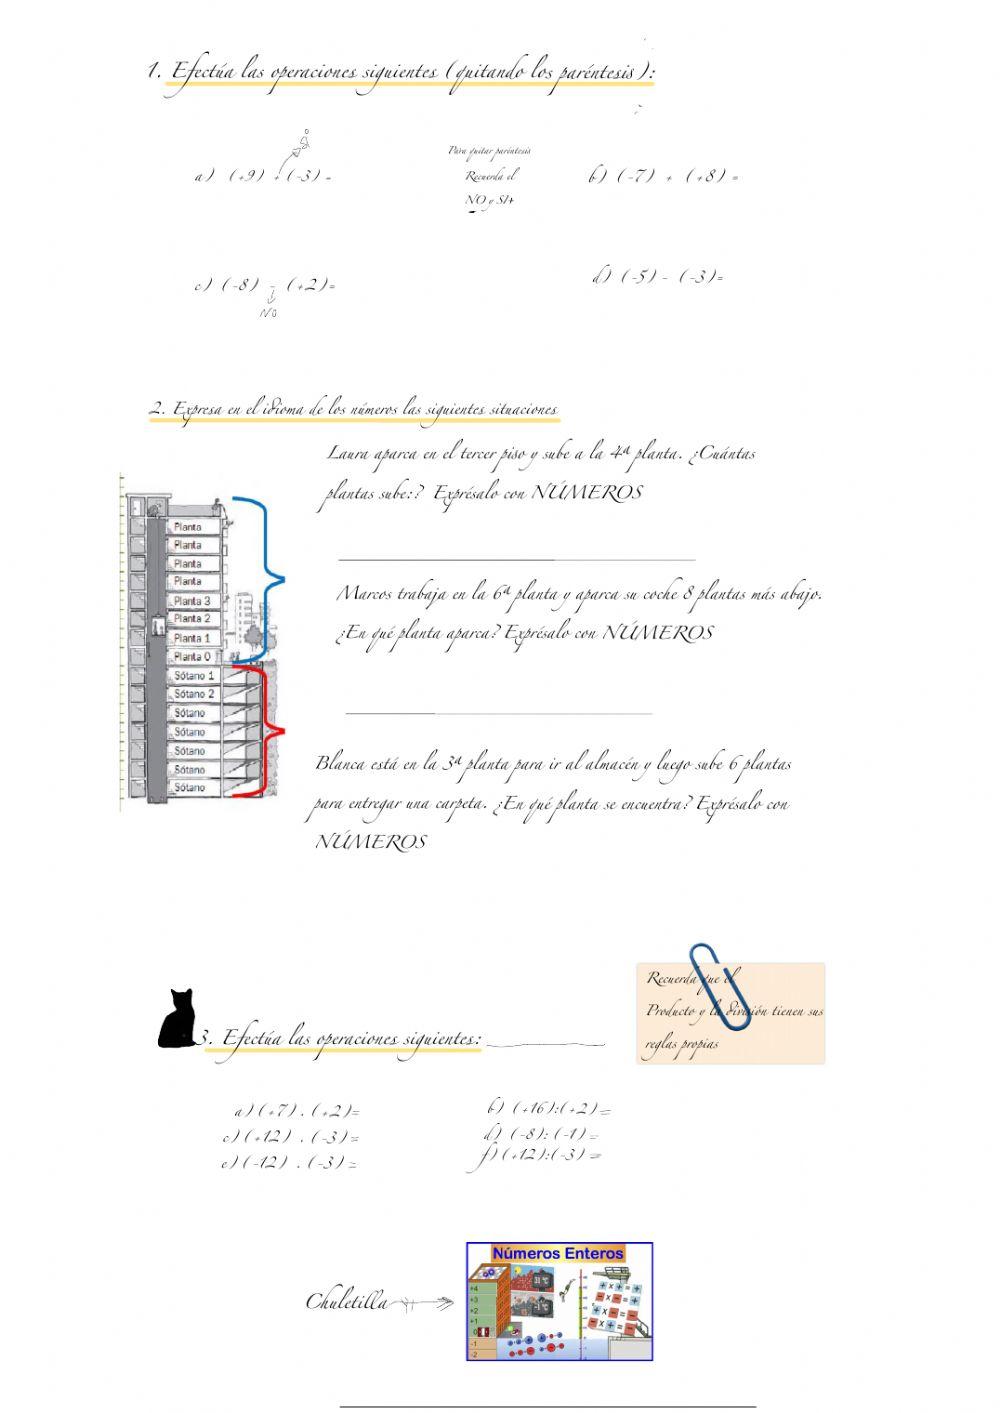 1. Efectúa las operaciones siguientes (quitando los paréntesis):
a) (+9) + (-3) =
Para quitar paréntesis
Recuerda el
NO y SI+
b) (-7) + (+8) =
c) (-8) - (+2)=
NO
d) (-5) - (-3)=
2. Expresa en el idioma de los números las siguientes situaciones
Laura aparca en el tercer piso y sube a la 4ª planta. ¿Cuántas
plantas sube:? Exprésalo con NÚMEROS
Marcos trabaja en la 6ª planta y aparca su coche 8 plantas más abajo.
¿En qué planta aparca? Exprésalo con NÚMEROS
Blanca está en la 3ª planta para ir al almacén y luego sube 6 plantas
para entregar una carpeta. ¿En qué planta se encuentra? Exprésalo con
NÚMEROS
Planta
Planta
Planta
Planta
Planta 3
Planta 2
Planta 1
Planta 0
Sótano 1
Sótano 2
Sótano
Sótano
Sótano
Sótano
Sótano
Recuerda que el
Producto y la división tienen sus
reglas propias
3. Efectúa las operaciones siguientes:
a) (+7) . (+2)=
b) (+16):(+2)=
c) (+12) . (-3)=
d) (-8): (-1)=
e) (-12) . (-3)=
f) (+12):(-3)=
Chuletilla
Números Enteros
+4
+3
+2
+1
0
-1
-2